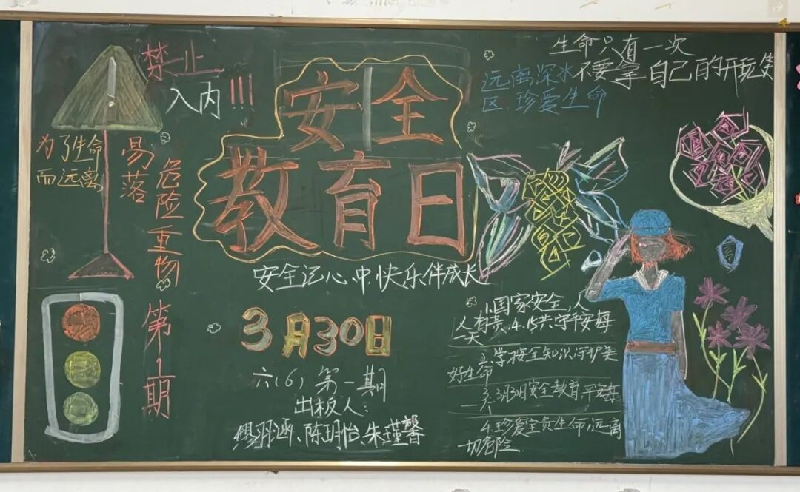 禁止
入内!!!
为了生命
而远离
易落
危险重物
第1期
安全
教育日
安全记心中快乐伴成长
3月30日
六(6)第一期
出板人:
陈玥怡、朱瑾馨
远离深水
区珍爱生命
生命只有一次
不要拿自己的开玩笑
1.国家安全,人
人有责
2.学安全知识,守护美
好生命
安全教育
4.珍爱生命,远离
一切危险